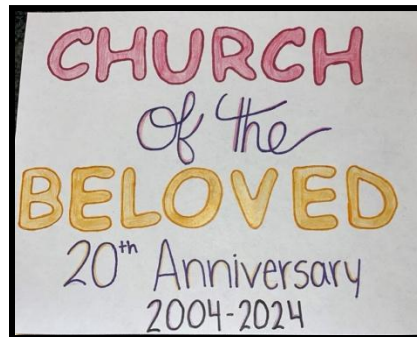 CHURCH
of the
BELOVED
20th Anniversary
2004-2024